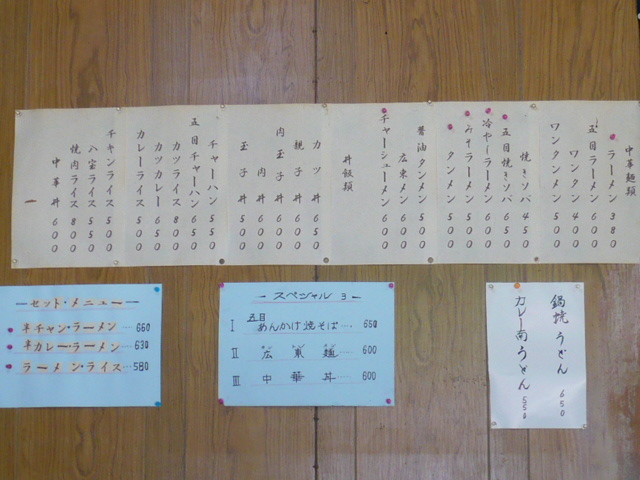 中華麺類
ラーメン 380
五目ラーメン 600
ワンタン 400
ワンタンメン 500
焼きソバ 450
五目焼きソバ 650
冷やしラーメン 600
みそラーメン 500
タンメン 500
醤油タンメン 500
広東メン 600
チャーシューメン 600
丼飯類
カツ丼 650
親子丼 600
肉玉子丼 600
肉丼 600
玉子丼 500
チャーハン 550
五目チャーハン 650
カツライス 800
カツカレー 650
カレーライス 500
チキンライス 550
八宝ライス 550
焼肉ライス 800
中華丼 600
ー
ーセット・メニューー
半チャン・ラーメン…660
半カレー・ラーメン…630
ラーメン・ライス…580
ースペシャル 3ー
I 五目あんかけ焼そば…660
II 広東麺…600
III 中華丼…600
鍋焼うどん 650
カレー南うどん 550